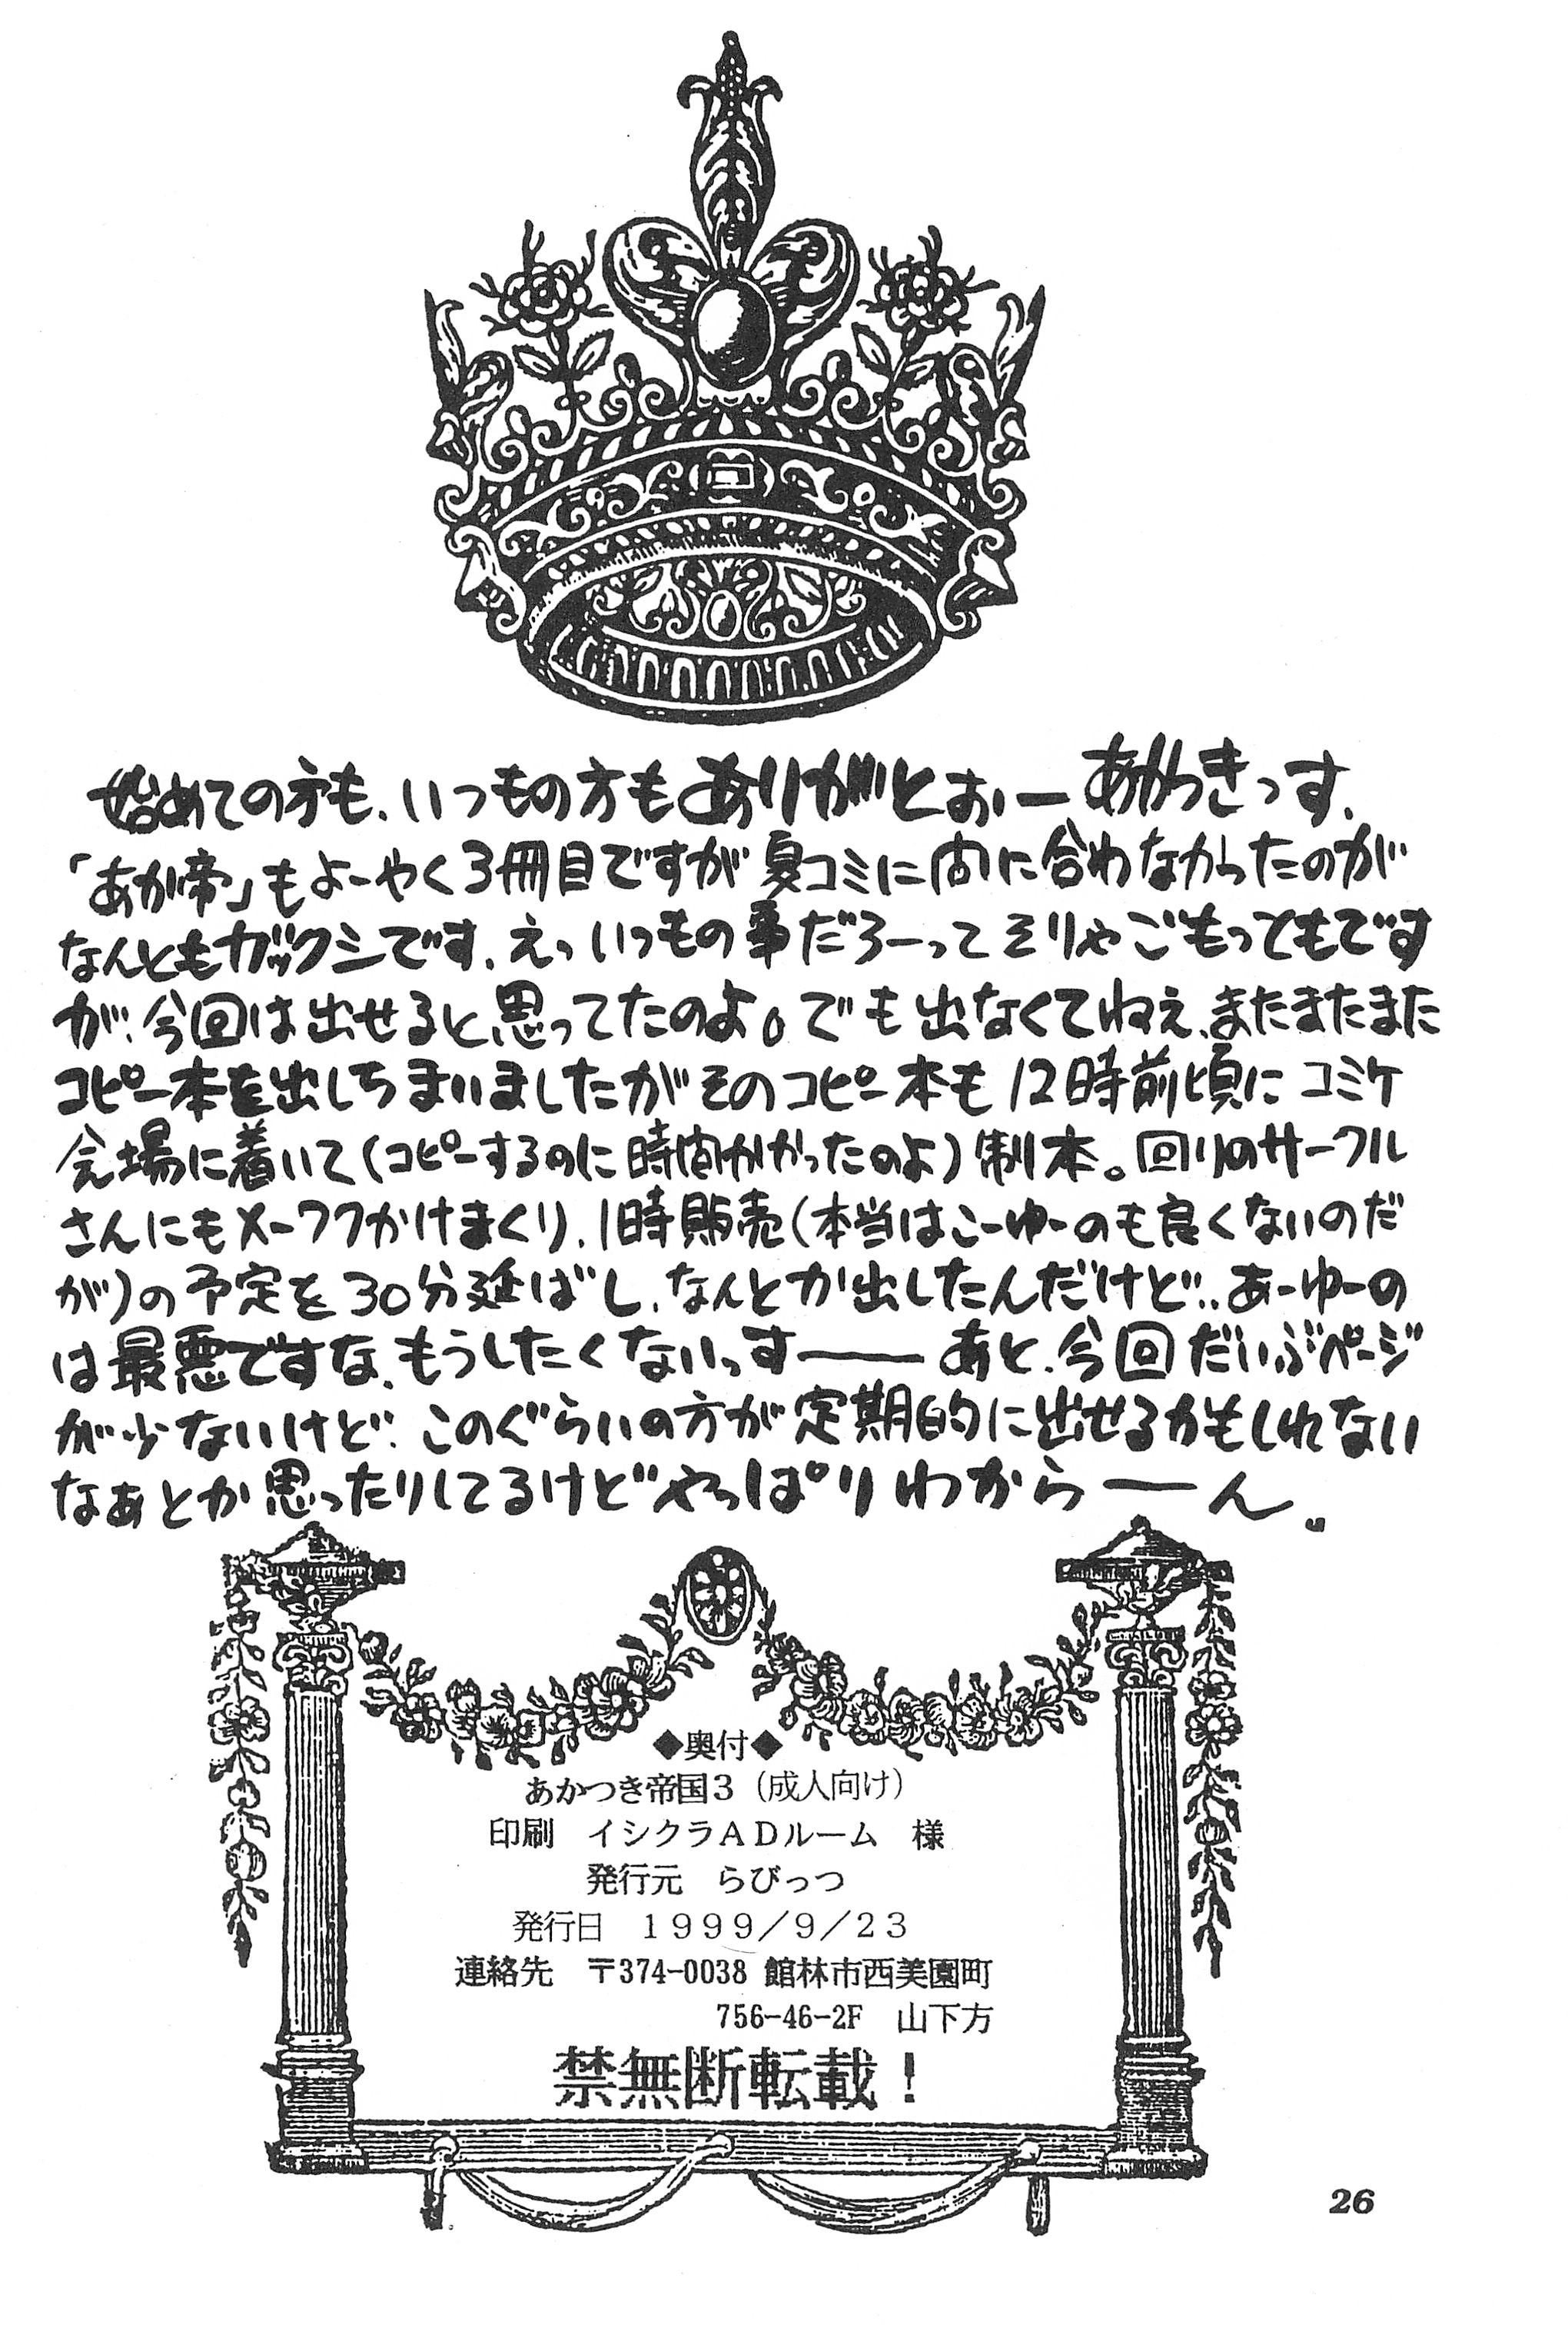 始めての方も、いつもの方もありがとおぉーあかつきっす、
「あか帝」もよーやく3冊目ですが夏コミに間に合わなかったのが
なんともガックシです、えっいつもの事だろーってそりゃごもっともです
が、今回は出せると思ってたのよ。でも出なくてねえ、またまたまた
コピー本を出しちまいましたがそのコピー本も12時前頃にコミケ
会場に着いて(コピーするのに時間かかったのよ)制本。回りのサークル
さんにもメーワクかけまくり、1時販売(本当はこーゆーのも良くないのだ
が)の予定を30分延ばし、なんとか出したんだけど、、あーゆーの
は最悪ですな、もうしたくないっすーー あと、今回だいぶページ
が少ないけど、このぐらいの方が定期的に出せるかもしれない
なぁとか思ったりしてるけどやっぱりわからーん。
◆奥付◆
あかつき帝国3(成人向け)
印刷 イシクラADルーム 様
発行元 らびっつ
発行日 1999/9/23
連絡先 〒374-0038 館林市西美園町
756-46-2F 山下方
禁無断転載!
26